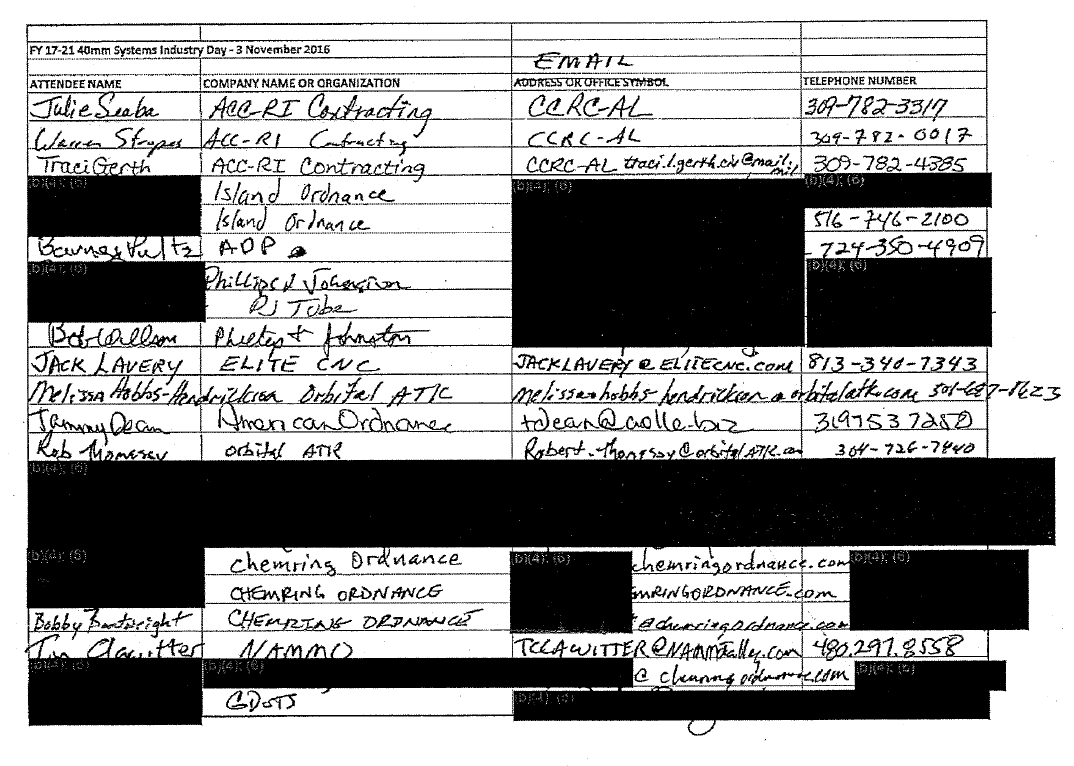 FY 17-21 40mm Systems Industry Day - 3 November 2016
EMAIL
ATTENDEE NAME COMPANY NAME OR ORGANIZATION ADDRESS OR OFFICE SYMBOL TELEPHONE NUMBER
Julie Seaba ACC-RI Contracting CCRC-AL 309-782-3317
Warren ACC-RI Contracting CCRC-AL 309-782-0017
Traci Gerth ACC-RI Contracting CCRC-AL traci.l.gerth.civ@mail.mil 309-782-4385
(b)(4); (6) Island Ordnance (b)(4); (6) (b)(4); (6)
Island Ordnance 516-746-2100
ADP 724-350-4909
(b)(4); (6) Phillips & Johnston (b)(4); (6)
PJ Tube
Bob Willson Phillips & Johnston
JACK LAVERY ELITE CNC JACKLAVERY@ELITECNC.com 813-340-7343
Melissa Hobbs-Hendrickson Orbital ATK
Tammy Dean American Ordnance tdean@aollc.biz 3197537250
Rob Orbital ATK 304-726-7440
(b)(4); (6)
(b)(4); (6) Chemring Ordnance (b)(4); (6) chemringordnance.com (b)(4); (6)
CHEMRING ORDNANCE EMRINGORDNANCE.com
Bobby Boatwright CHEMRING ORDNANCE @chemringordnance.com
Tim Clawitter NAMMO TCLAWITTER@NAMMOtalley.com 480.297.8558
(b)(4); (6) (b)(4); (6) @chemringordnance.com (b)(4); (6)
GDOTS (b)(4); (6)